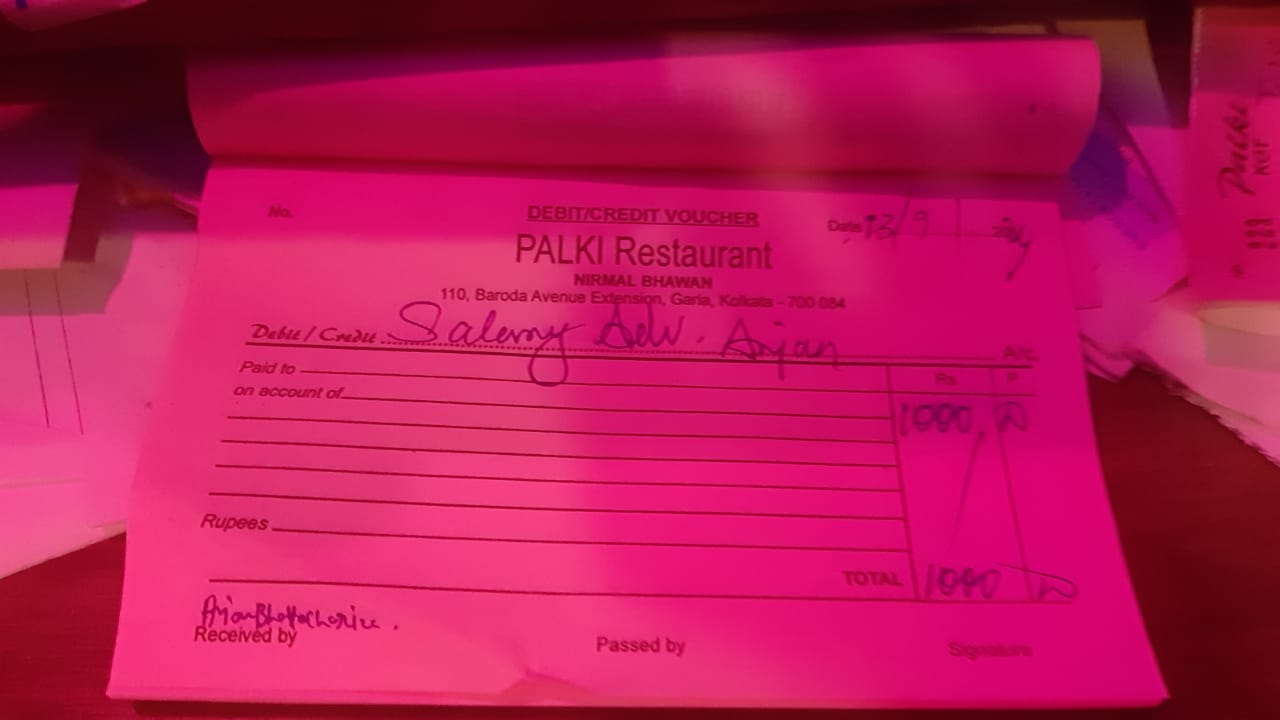 No.
DEBIT/CREDIT VOUCHER
Date 13/9/
PALKI Restaurant
NIRMAL BHAWAN
110, Baroda Avenue Extension, Garia, Kolkata - 700 084
Debit / Credit Salemy Adv. Arjan A/c.
Paid to Rs. P.
on account of 1000,
Rupees
TOTAL 1000
Arjan Bhattacharjee.
Received by Passed by Signature
Palki
KOT